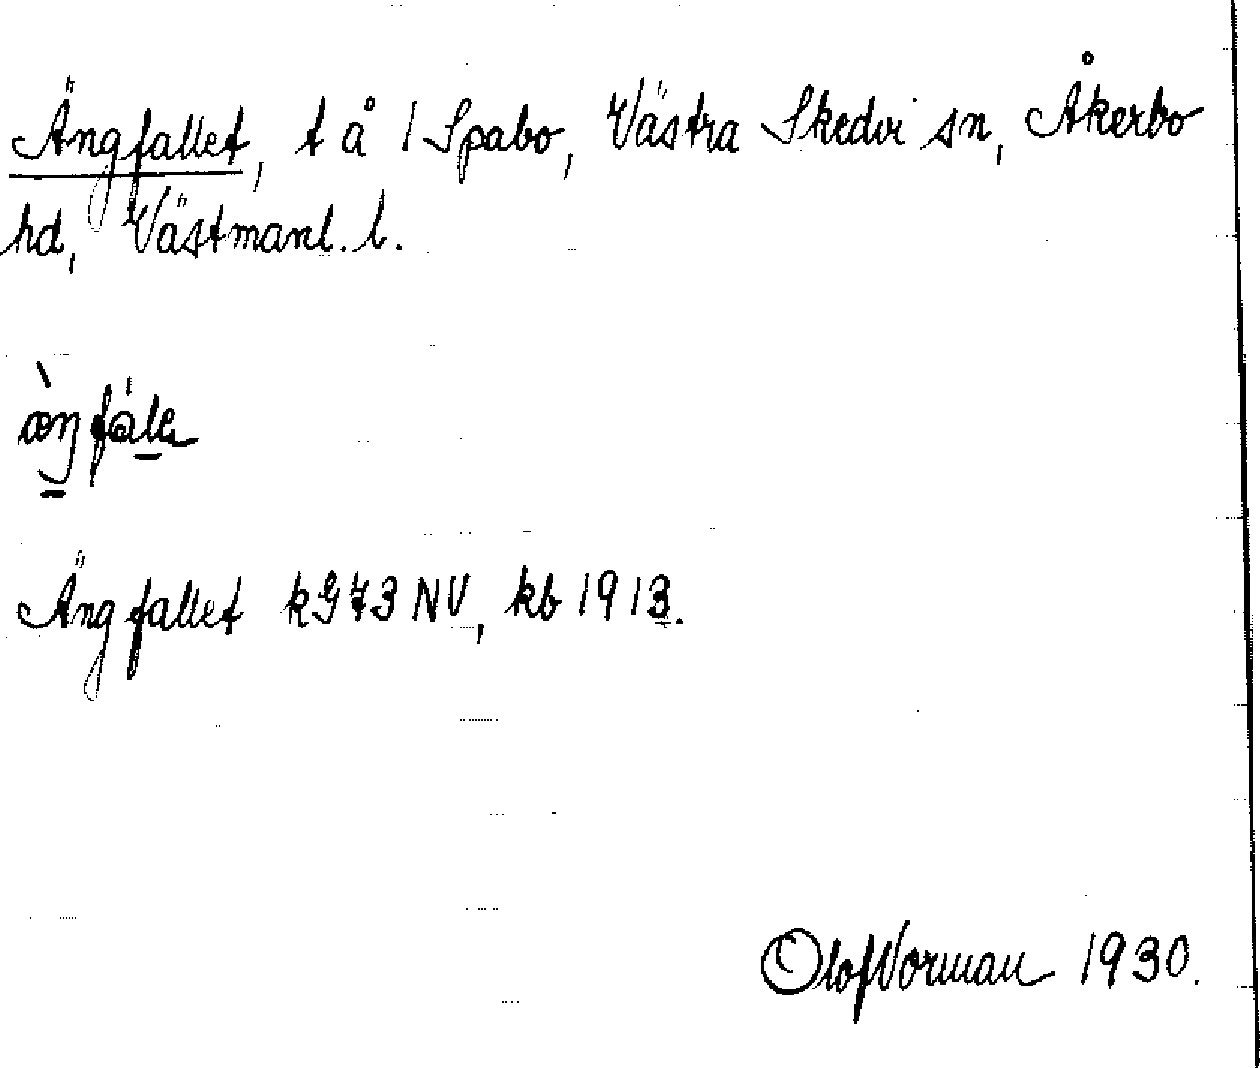 Ängfallet, t å 1 Spabo, Västra Skedvi sn, Åkerbo
hd, Västmanl. l.
Ängfallet k973 NV, kb 1913.
Olof Norman 1930.